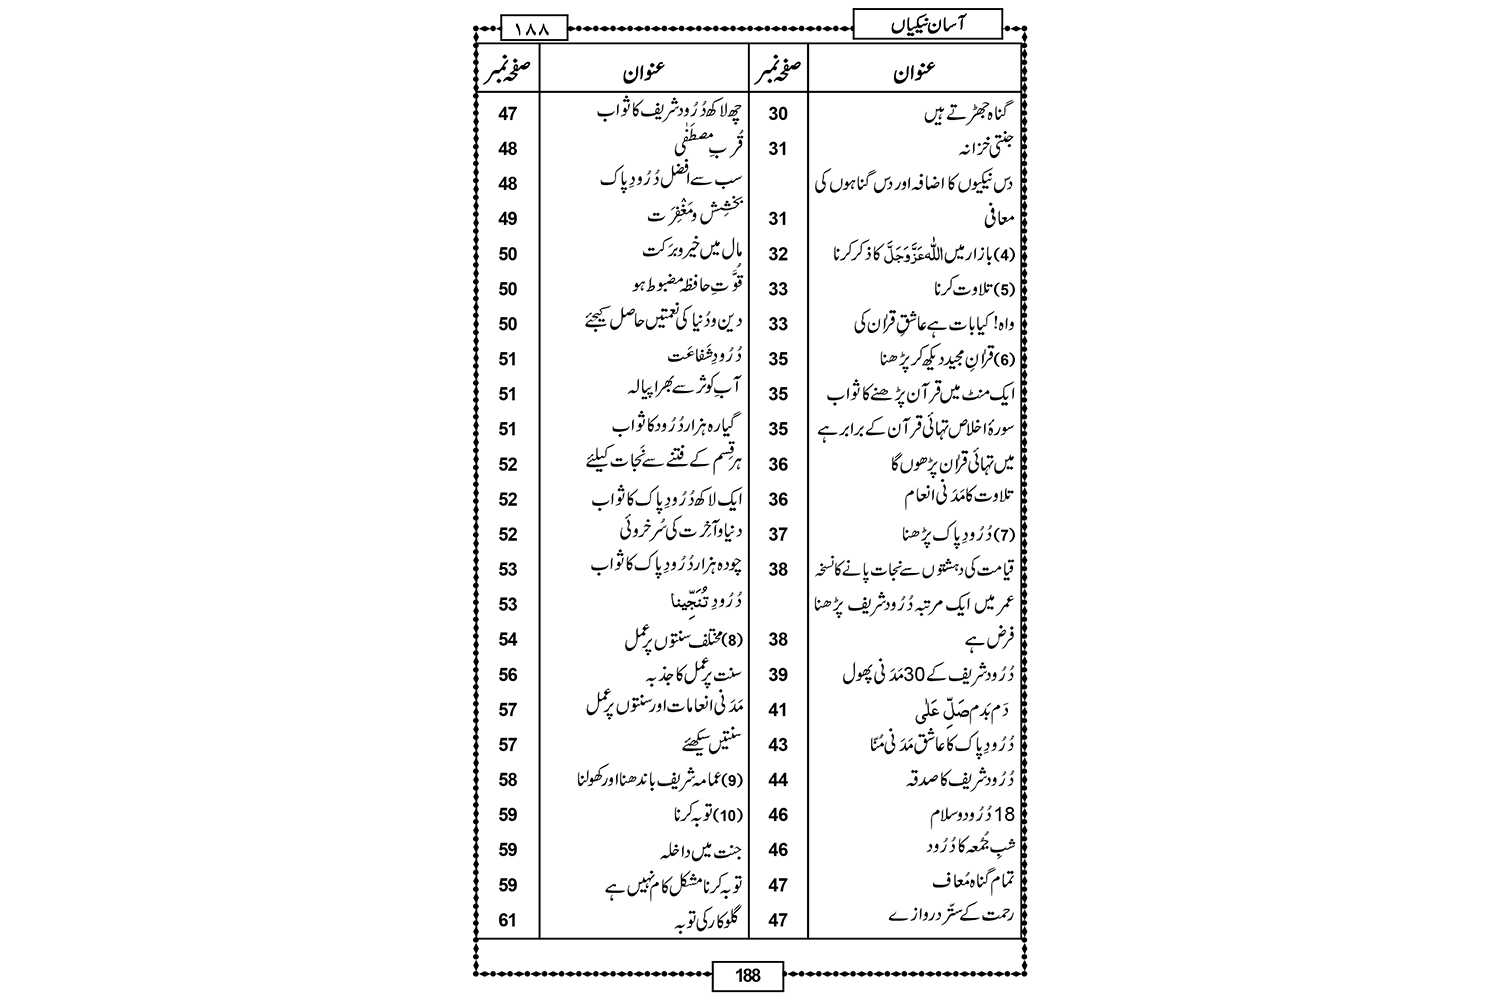 آسان نیکیاں
۱۸۸
عنوان صفحہ نمبر
گناہ جھڑتے ہیں 30
جنتی خزانہ 31
دس نیکیوں کا اضافہ اور دس گناہوں کی
معافی 31
(4) بازار میں اللہ عَزَّوَجَلَّ کا ذکر کرنا 32
(5) تلاوت کرنا 33
واہ! کیا بات ہے عاشقِ قراٰن کی 33
(6) قراٰنِ مجید دیکھ کر پڑھنا 35
ایک منٹ میں قرآن پڑھنے کا ثواب 35
سورۂ اخلاص تہائی قرآن کے برابر ہے 35
میں تہائی قراٰن پڑھوں گا 36
تلاوت کا مَدَنی انعام 36
(7) دُرُودِ پاک پڑھنا 37
قیامت کی دہشتوں سے نجات پانے کا نسخہ 38
عمر میں ایک مرتبہ دُرُود شریف پڑھنا
فرض ہے 38
دُرُود شریف کے 30 مَدَنی پھول 39
دَم بَدم صَلِّ عَلٰی 41
دُرُودِ پاک کا عاشق مَدَنی مُنّا 43
دُرُود شریف کا صدقہ 44
18 دُرُود و سلام 46
شبِ جُمُعہ کا دُرُود 46
تمام گناہ مُعاف 47
رحمت کے ستّر دروازے 47
عنوان صفحہ نمبر
چھ لاکھ دُرُود شریف کا ثواب 47
قُربِ مصطَفٰی 48
سب سے افضل دُرُودِ پاک 48
بخشِش و مَغْفِرَت 49
مال میں خیر و برَکت 50
قُوَّتِ حافظہ مضبوط ہو 50
دین و دُنیا کی نعمتیں حاصل کیجئے 50
دُرُودِ شَفاعَت 51
آبِ کوثر سے بھرا پیالہ 51
گیارہ ہزار دُرُود کا ثواب 51
ہر قِسم کے فتنے سے نَجات کیلئے 52
ایک لاکھ دُرُودِ پاک کا ثواب 52
دنیا و آخِرت کی سُرخروئی 52
چودہ ہزار دُرُودِ پاک کا ثواب 53
دُرُودِ تُنَجِّینا 53
(8) مختلف سنتوں پر عمل 54
سنت پر عمل کا جذبہ 56
مَدَنی انعامات اور سنتوں پر عمل 57
سنتیں سیکھئے 57
(9) عمامہ شریف باندھنا اور کھولنا 58
(10) توبہ کرنا 59
جنت میں داخلہ 59
توبہ کرنا مشکل کام نہیں ہے 59
گلوکار کی توبہ 61
188